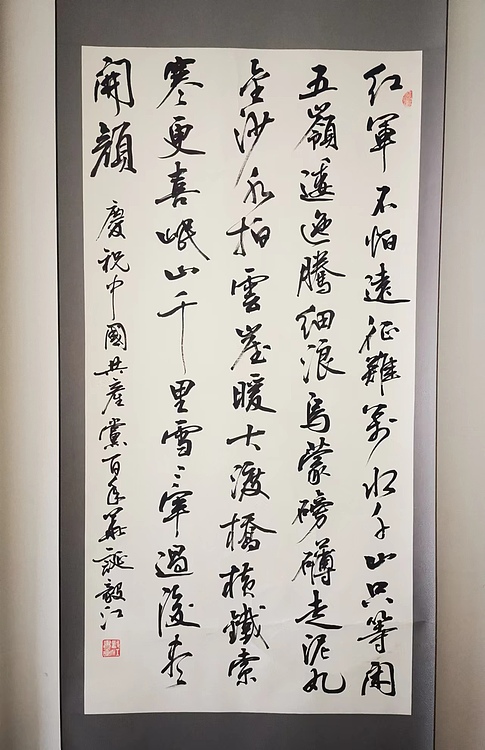 红軍不怕遠征難萬水千山只等閑
五嶺逶迤騰細浪烏蒙磅礴走泥丸
金沙水拍雲崖暖大渡橋横鐵索
寒更喜岷山千里雪三軍過後盡
開顔
慶祝中國共産黨百年華誕毅江